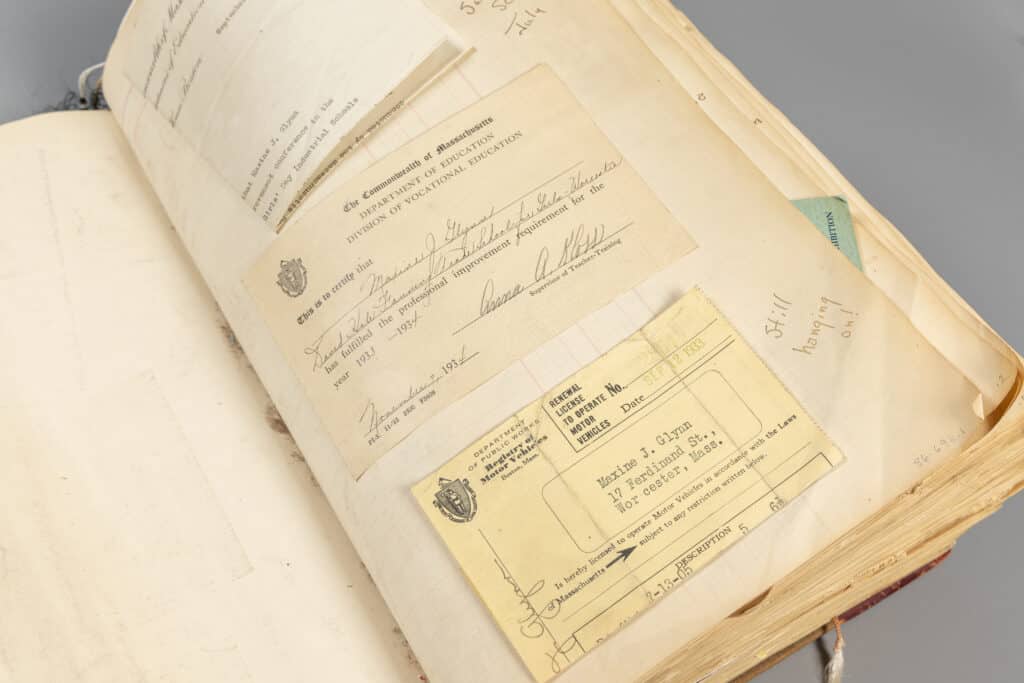 that Maxine J. Glynn
conference in the
Girls' Day Industrial Schools
July
The Commonwealth of Massachusetts
DEPARTMENT OF EDUCATION
DIVISION OF VOCATIONAL EDUCATION
This is to certify that Maxine J. Glynn
David Hale Fanning Trade School for Girls - Worcester
has fulfilled the professional improvement requirement for the
year 1933 - 1934
Anna A. Kloss
Supervisor of Teacher-Training
November 2, 1934
HIBITION
Still
hanging
on!
DEPARTMENT
OF PUBLIC WORKS
Registry of
Motor Vehicles
Boston, Mass.
RENEWAL
LICENSE
TO OPERATE
MOTOR
VEHICLES
No.
Date
SEP 12 1933
Maxine J. Glynn
17 Ferdinand St.,
Wor cester, Mass.
Is hereby licensed to operate Motor Vehicles in accordance with the Laws
of Massachusetts subject to any restriction written below.
DESCRIPTION 5
-13-05